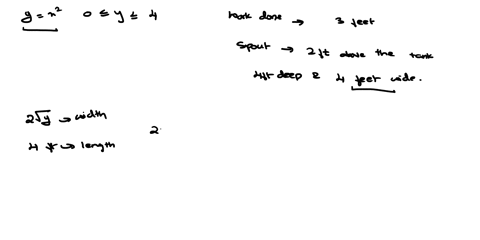 y = x² 0 ≤ y ≤ 4
tank done → 3 feet
Spout → 2 ft above the tank
4ft deep & 4 feet wide.
2√y → width
4 → length
2